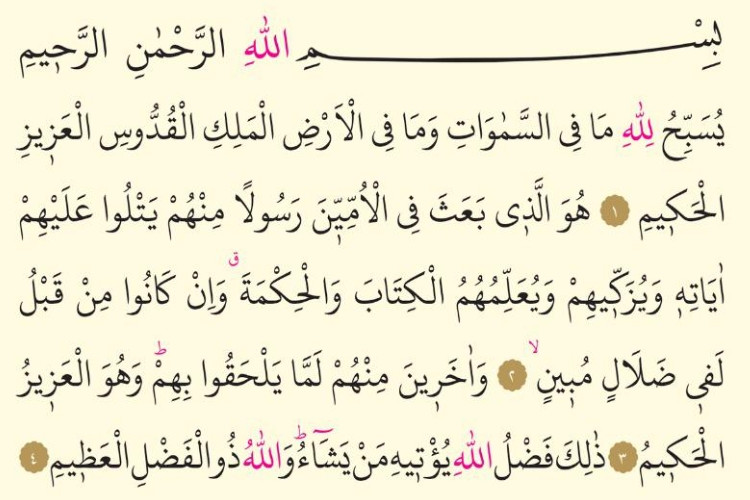 بِسْمِ اللّٰهِ الرَّحْمٰنِ الرَّحٖيمِ
يُسَبِّحُ لِلّٰهِ مَا فِى السَّمٰوَاتِ وَمَا فِى الْاَرْضِ الْمَلِكِ الْقُدُّوسِ الْعَزٖيزِ
الْحَكٖيمِ ١ هُوَ الَّذٖى بَعَثَ فِى الْاُمِّيّٖنَ رَسُولًا مِنْهُمْ يَتْلُوا عَلَيْهِمْ
اٰيَاتِهٖ وَيُزَكّٖيهِمْ وَيُعَلِّمُهُمُ الْكِتَابَ وَالْحِكْمَةَ ق وَاِنْ كَانُوا مِنْ قَبْلُ
لَفٖى ضَلَالٍ مُبٖينٍ ۙ ٢ وَاٰخَرٖينَ مِنْهُمْ لَمَّا يَلْحَقُوا بِهِمْ ؕ وَهُوَ الْعَزٖيزُ
الْحَكٖيمُ ٣ ذٰلِكَ فَضْلُ اللّٰهِ يُؤْتٖيهِ مَنْ يَشَٓاءُ ؕ وَاللّٰهُ ذُو الْفَضْلِ الْعَظٖيمِ ٤